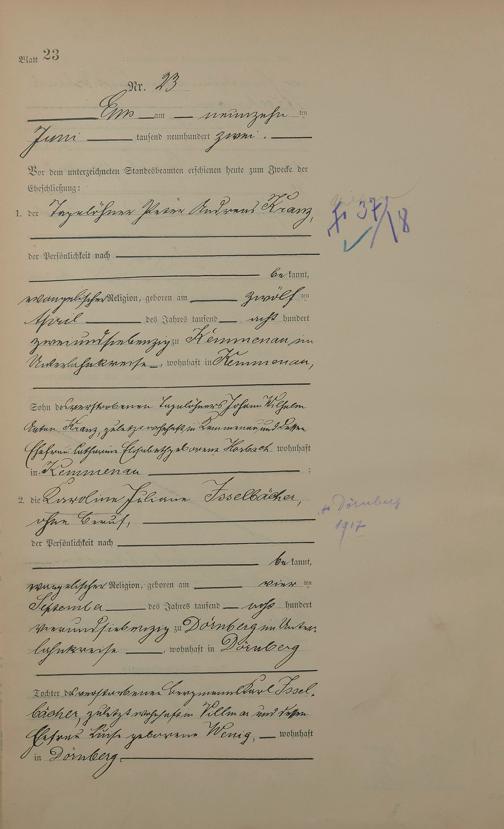 Blatt 23
Nr. 23
Ems am neunzehn ten
Juni tausend neunhundert zwei.
Vor dem unterzeichneten Standesbeamten erschienen heute zum Zwecke der
Eheschließung:
1. der Tagelöhner Peter Andreas Kranz,
der Persönlichkeit nach
be kannt,
evangelischer Religion, geboren am zwölf ten
April des Jahres tausend acht hundert
zweiundsiebenzig zu Kemmenau, im
Unterlahnkreise, wohnhaft in Kemmenau,
Sohn des verstorbenen Tagelöhners Johann Wilhelm
Anton Kranz, zuletzt wohnhaft in Kemmenau und dessen
Ehefrau Catharine Elisabeth geborene wohnhaft
in Kemmenau ;
2. die Karoline Juliane Isselbächer,
ohne Beruf,
der Persönlichkeit nach
be kannt,
evangelischer Religion, geboren am vier ten
September des Jahres tausend acht hundert
vierundsiebenzig zu Dörnberg im Unter-
lahnkreise, wohnhaft in Dörnberg
Tochter des verstorbenen Bergmanns Karl Issel-
bächer, zuletzt wohnhaft in Villmar und dessen
Ehefrau Luise geborene Wenig, wohnhaft
in Dörnberg.
37/18
Dörnberg
1917